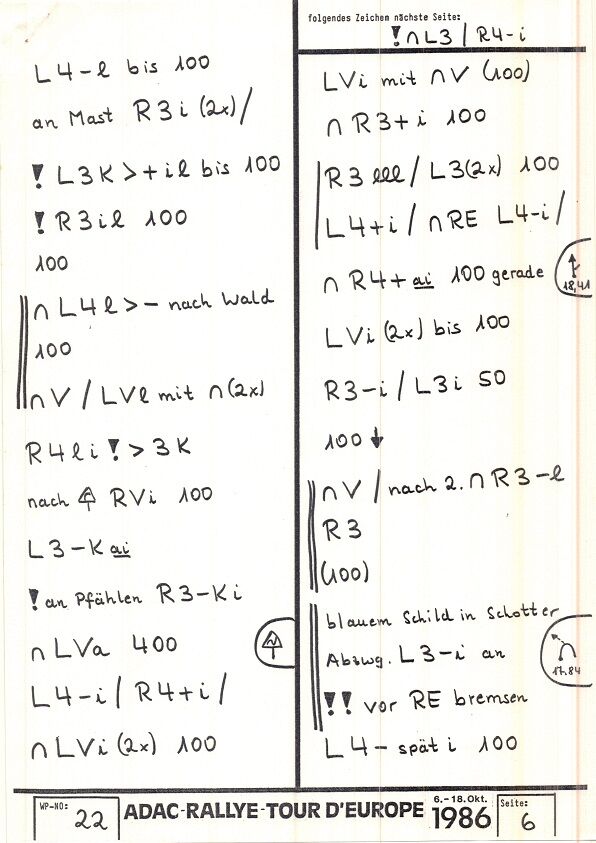 L4-l bis 100
an Mast R3i (2x)/
! L3K >+il bis 100
! R3il 100
100
∩ L4l >- nach Wald
100
∩V / LVl mit ∩(2x)
R4li ! > 3K
nach RVi 100
L3-K ai
! an Pfählen R3-Ki
∩ LVa 400
L4-i / R4+i /
∩ LVi (2x) 100
folgendes Zeichen nächste Seite:
! ∩ L3 / R4-i
LVi mit ∩V (100)
∩ R3+i 100
R3 lll / L3(2x) 100
L4+i / ∩RE L4-i /
∩ R4+ ai 100 gerade
18,41
LVi (2x) bis 100
R3-i / L3i 50
100 ↓
∩V / nach 2. ∩ R3-l
R3
(100)
blauem Schild in Schotter
Abzwg. L3-i an
17.84
!! vor RE bremsen
L4- spät i 100
WP-NO: 22
ADAC-RALLYE-TOUR D'EUROPE 6.-18.Okt. 1986
Seite: 6